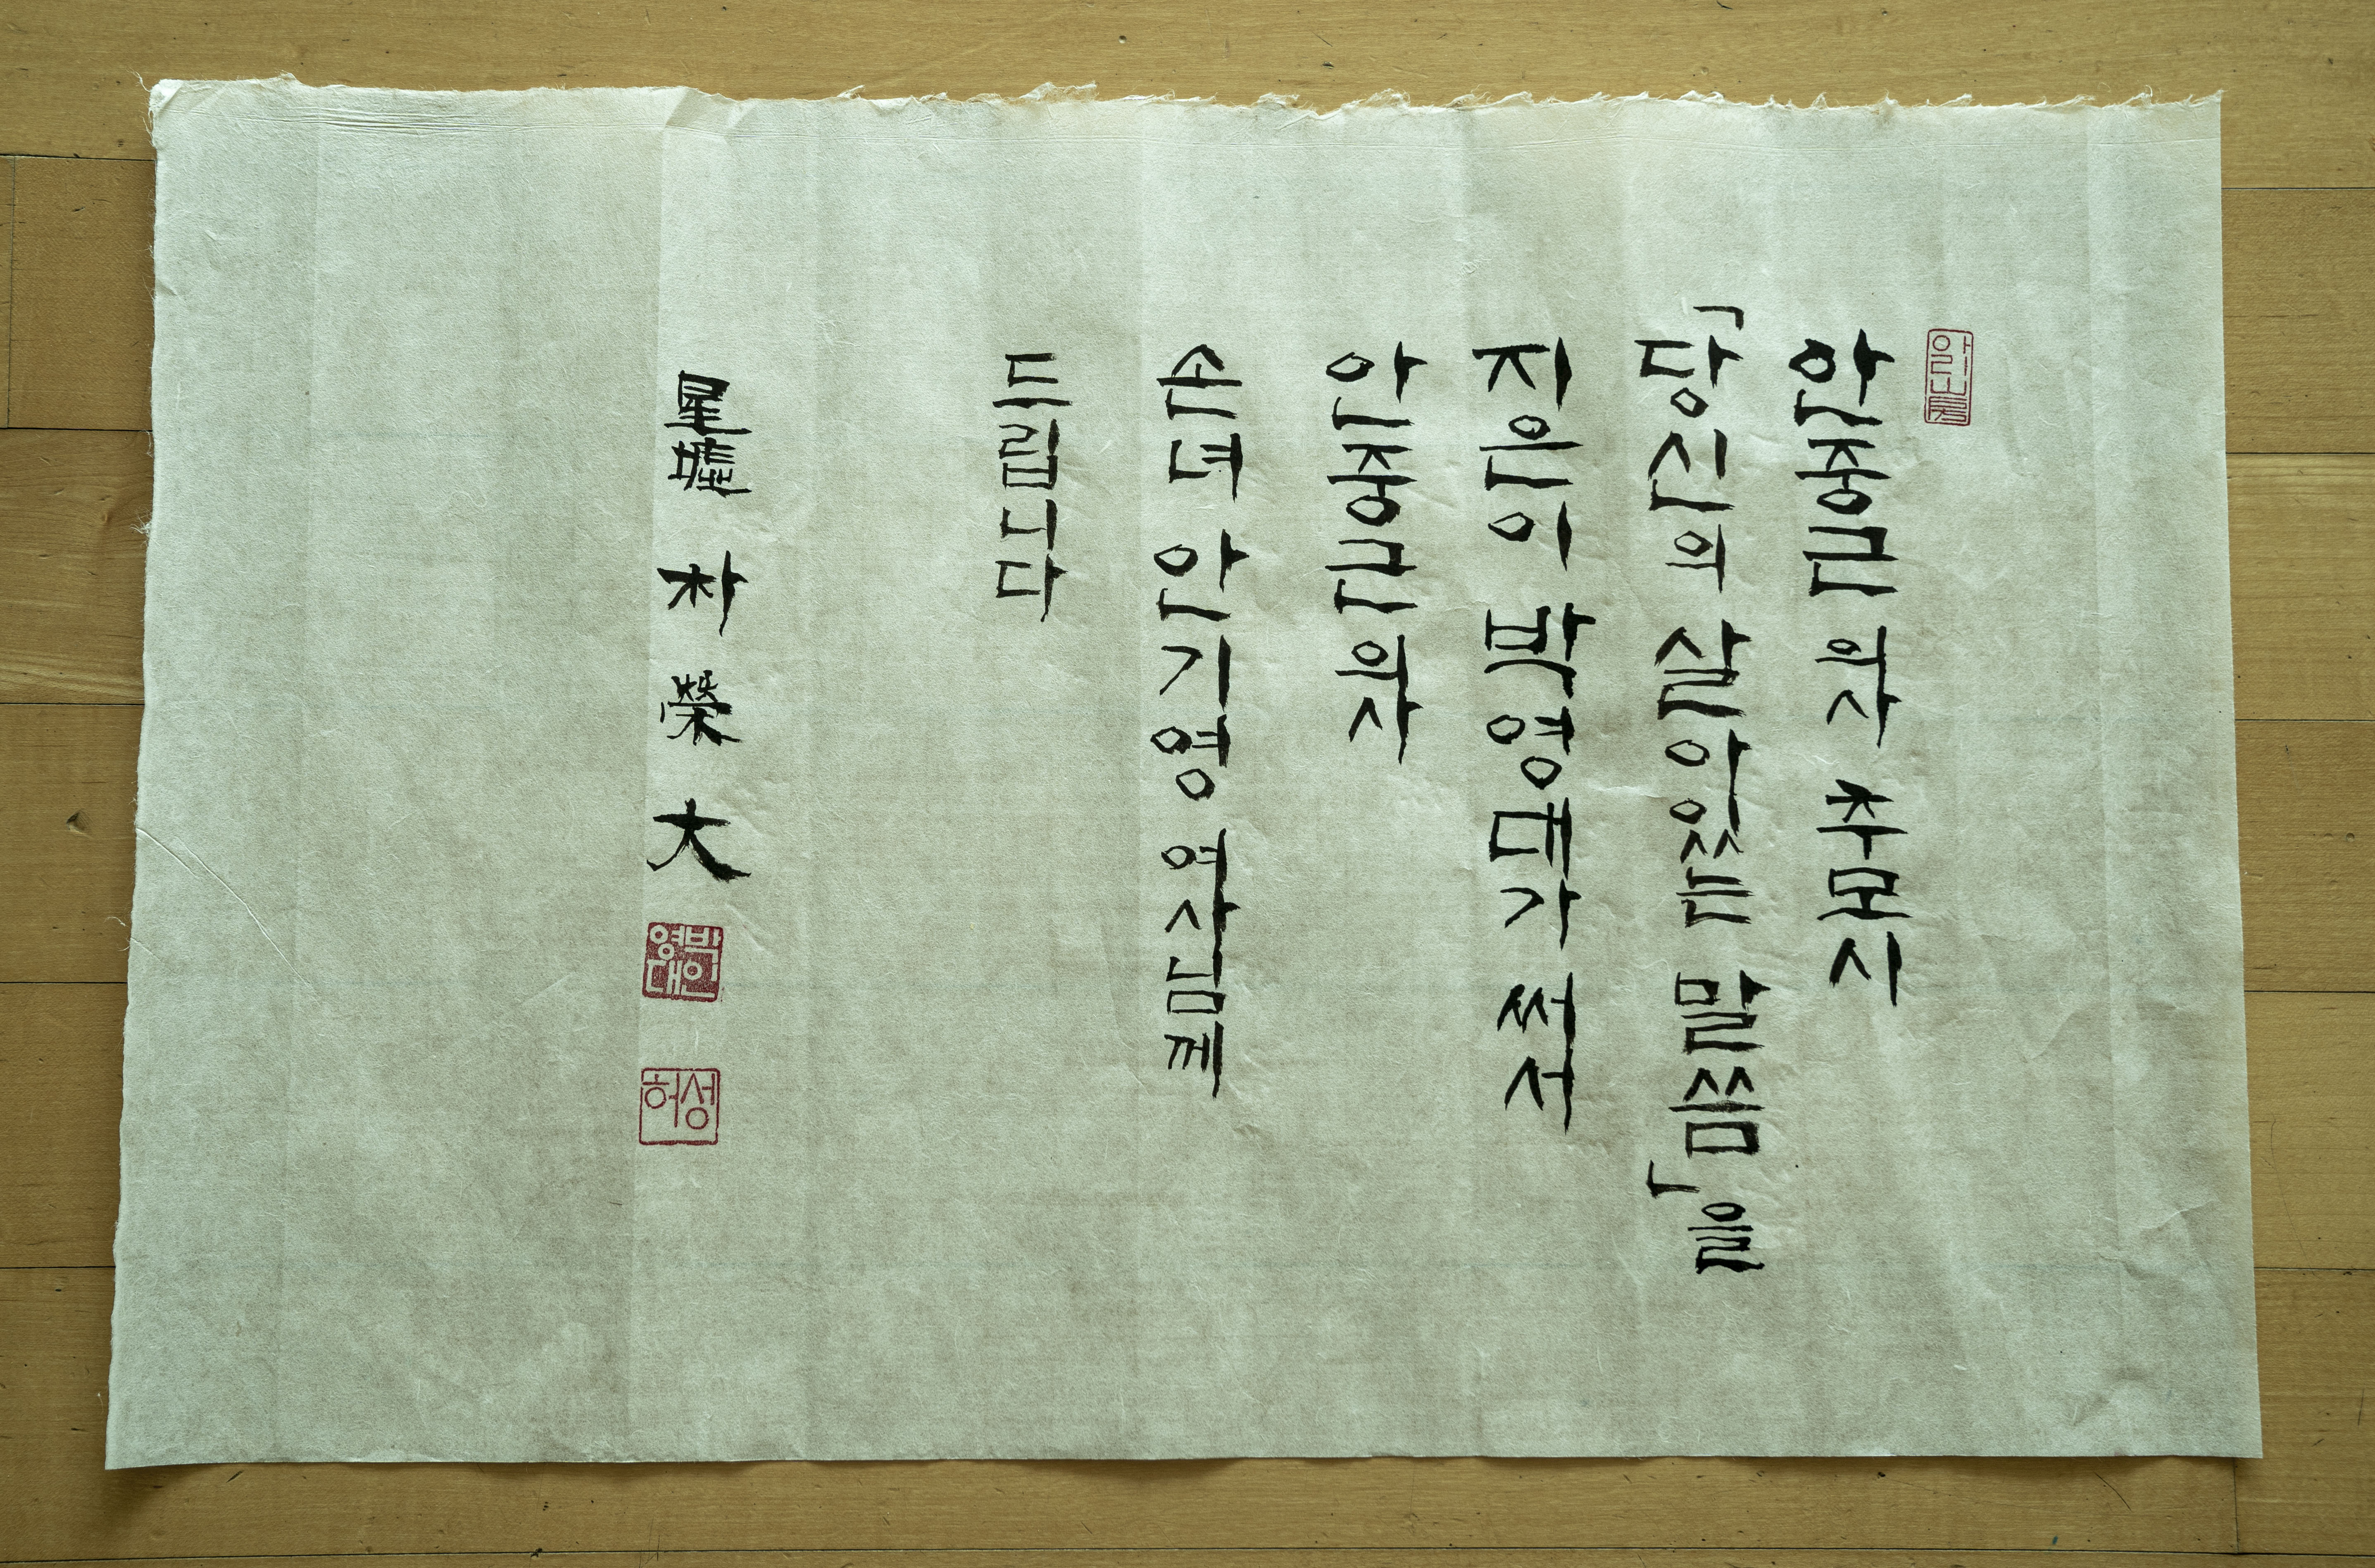 안중근 의사 추모시
「당신의 살아있는 말씀」을
지은이 박영대가 써서
안중근 의사
손녀 안기영 여사님께
드립니다
星墟 朴榮大
박인영대
성허